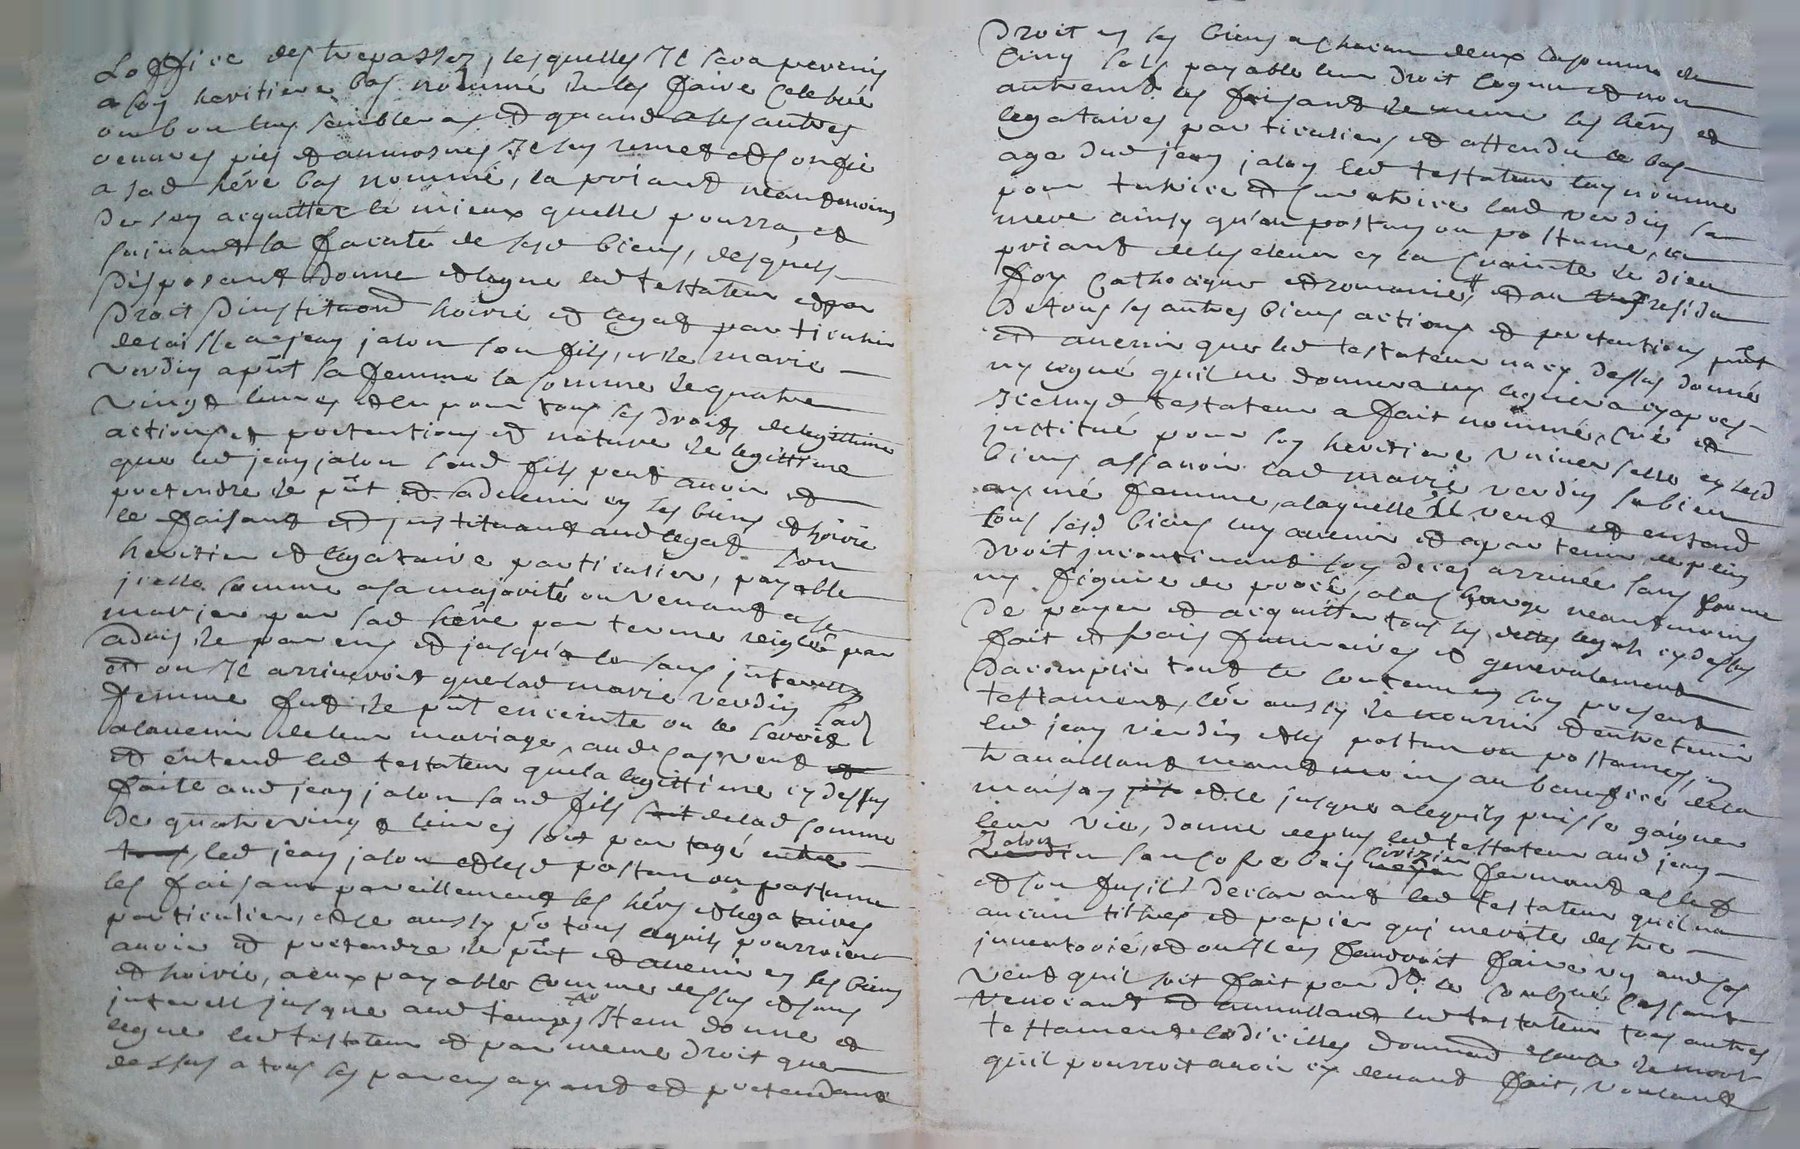 Loffice des trepassez, lesquelles Il sera prevenis
a son heritiere bas nommé de les faire Celebrér
ou bon luy semblera et quand a les autres
oeuvres pies et aumosnes Il les remet et Confie
a sad hére bas nommé, la priant neantmoins
de sen acquitter le mieux quelle pourra, et
suivant la faculté de sesd biens, desquels
disposant donne et legue led testateur et par
droit dinstituaon hoirie et legat particulier
delaisse a jean jalon son fils, et de marie
Verdin a pñt sa femme la somme de quatre
vingt livres et ce pour tous ses droits de legittime
actions et pretentions et nature de legittime
que led jean jalon soud fils peut avoir et
pretendre de pñt et advenir en ses biens et hoirie
le faisant et instituant aud legat son
heritier et legataire particulier, payable
jcelle somme a sa majorité ou venant a se
marier par sad hére par terme reiglée par
advis de parens et jusqu'a ce sans interestz
et ou Il arriveroit que lad marie verdin sad
femme fut de pñt enceinte ou le seroit
alavenir de leur mariage, aud Cas veut et
et entend led testateur que la legittime cy dessus
faite aud jean jalon soud fils soit de lad somme
de quatre vingt livres soit partagé entre
tous, led jean jalon et lesd postum ou postume
les faisant pareillement ses hérs et legataires
particulier, et ce aussy po tous cequils pourroient
avoir et pretendre de pñt et avenir en ses biens
et hoirie, a eux payable comme dessus et sans
interest jusque aud temps, Item donne et
legue led testateur et par meme droit que
dessus a tous ses parens ayant et pretendant
Droit en ses biens a chacun deux la somme de
Cinq sols payable leur droit Cognu et non
autremt les faisant de meme ses hérs et
legataires particuliers et attendu le bas
age dud jean jalon led testateur luy nomme
pour tutrice et Curatrice lad verdin sa
mere ainsy qu'au postum ou postume, la
priant de les elever en la Crainte de Dieu
foy Catholique et romaine, et au residu
de tous ses autres biens actions et pretentions pñt
et avenir que led testateur na cy dessus donné
ny legué quil ne donnera ny leguera cy apres
Jceluy d testateur a fait nommé, Crée et
jnstitué pour son heritiere Universelle en sesd
biens assavoir lad marie verdin sa bien
aymé femme, a laquelle Il veut et entend
tous sesd biens luy avenir et apartenir de plein
droit jncontinant son deces arrivée sans forme
ny figure de procé, a la Charge neantmoins
de payer et acquitter tous ses dettes legats cy dessus
fait et frais funeraires et generalement
dacomplir tout le Contenu en son present
testament, Côe aussy de nourrir et entretenir
led jean verdin et les postum ou postumes, en
travaillant neantmoins au benefice de la
maison et ce jusque a cequils puisse gaigner
leur vie, donne de plus led testateur aud jean
Jalon son Cofre bois fermant a clef
et son fusil, declarant led testateur quil na
aucun titres et papier qui merite destre
jnventorié, et ou Il en faudroit faire un aud cas
veut quil soit fait par Mr le soubzné Cassant
revocant et annullant led testateur tous autres
testaments Codicilles donnaôn a cause de mort
quil pourroit avoir cy devant fait, voulant